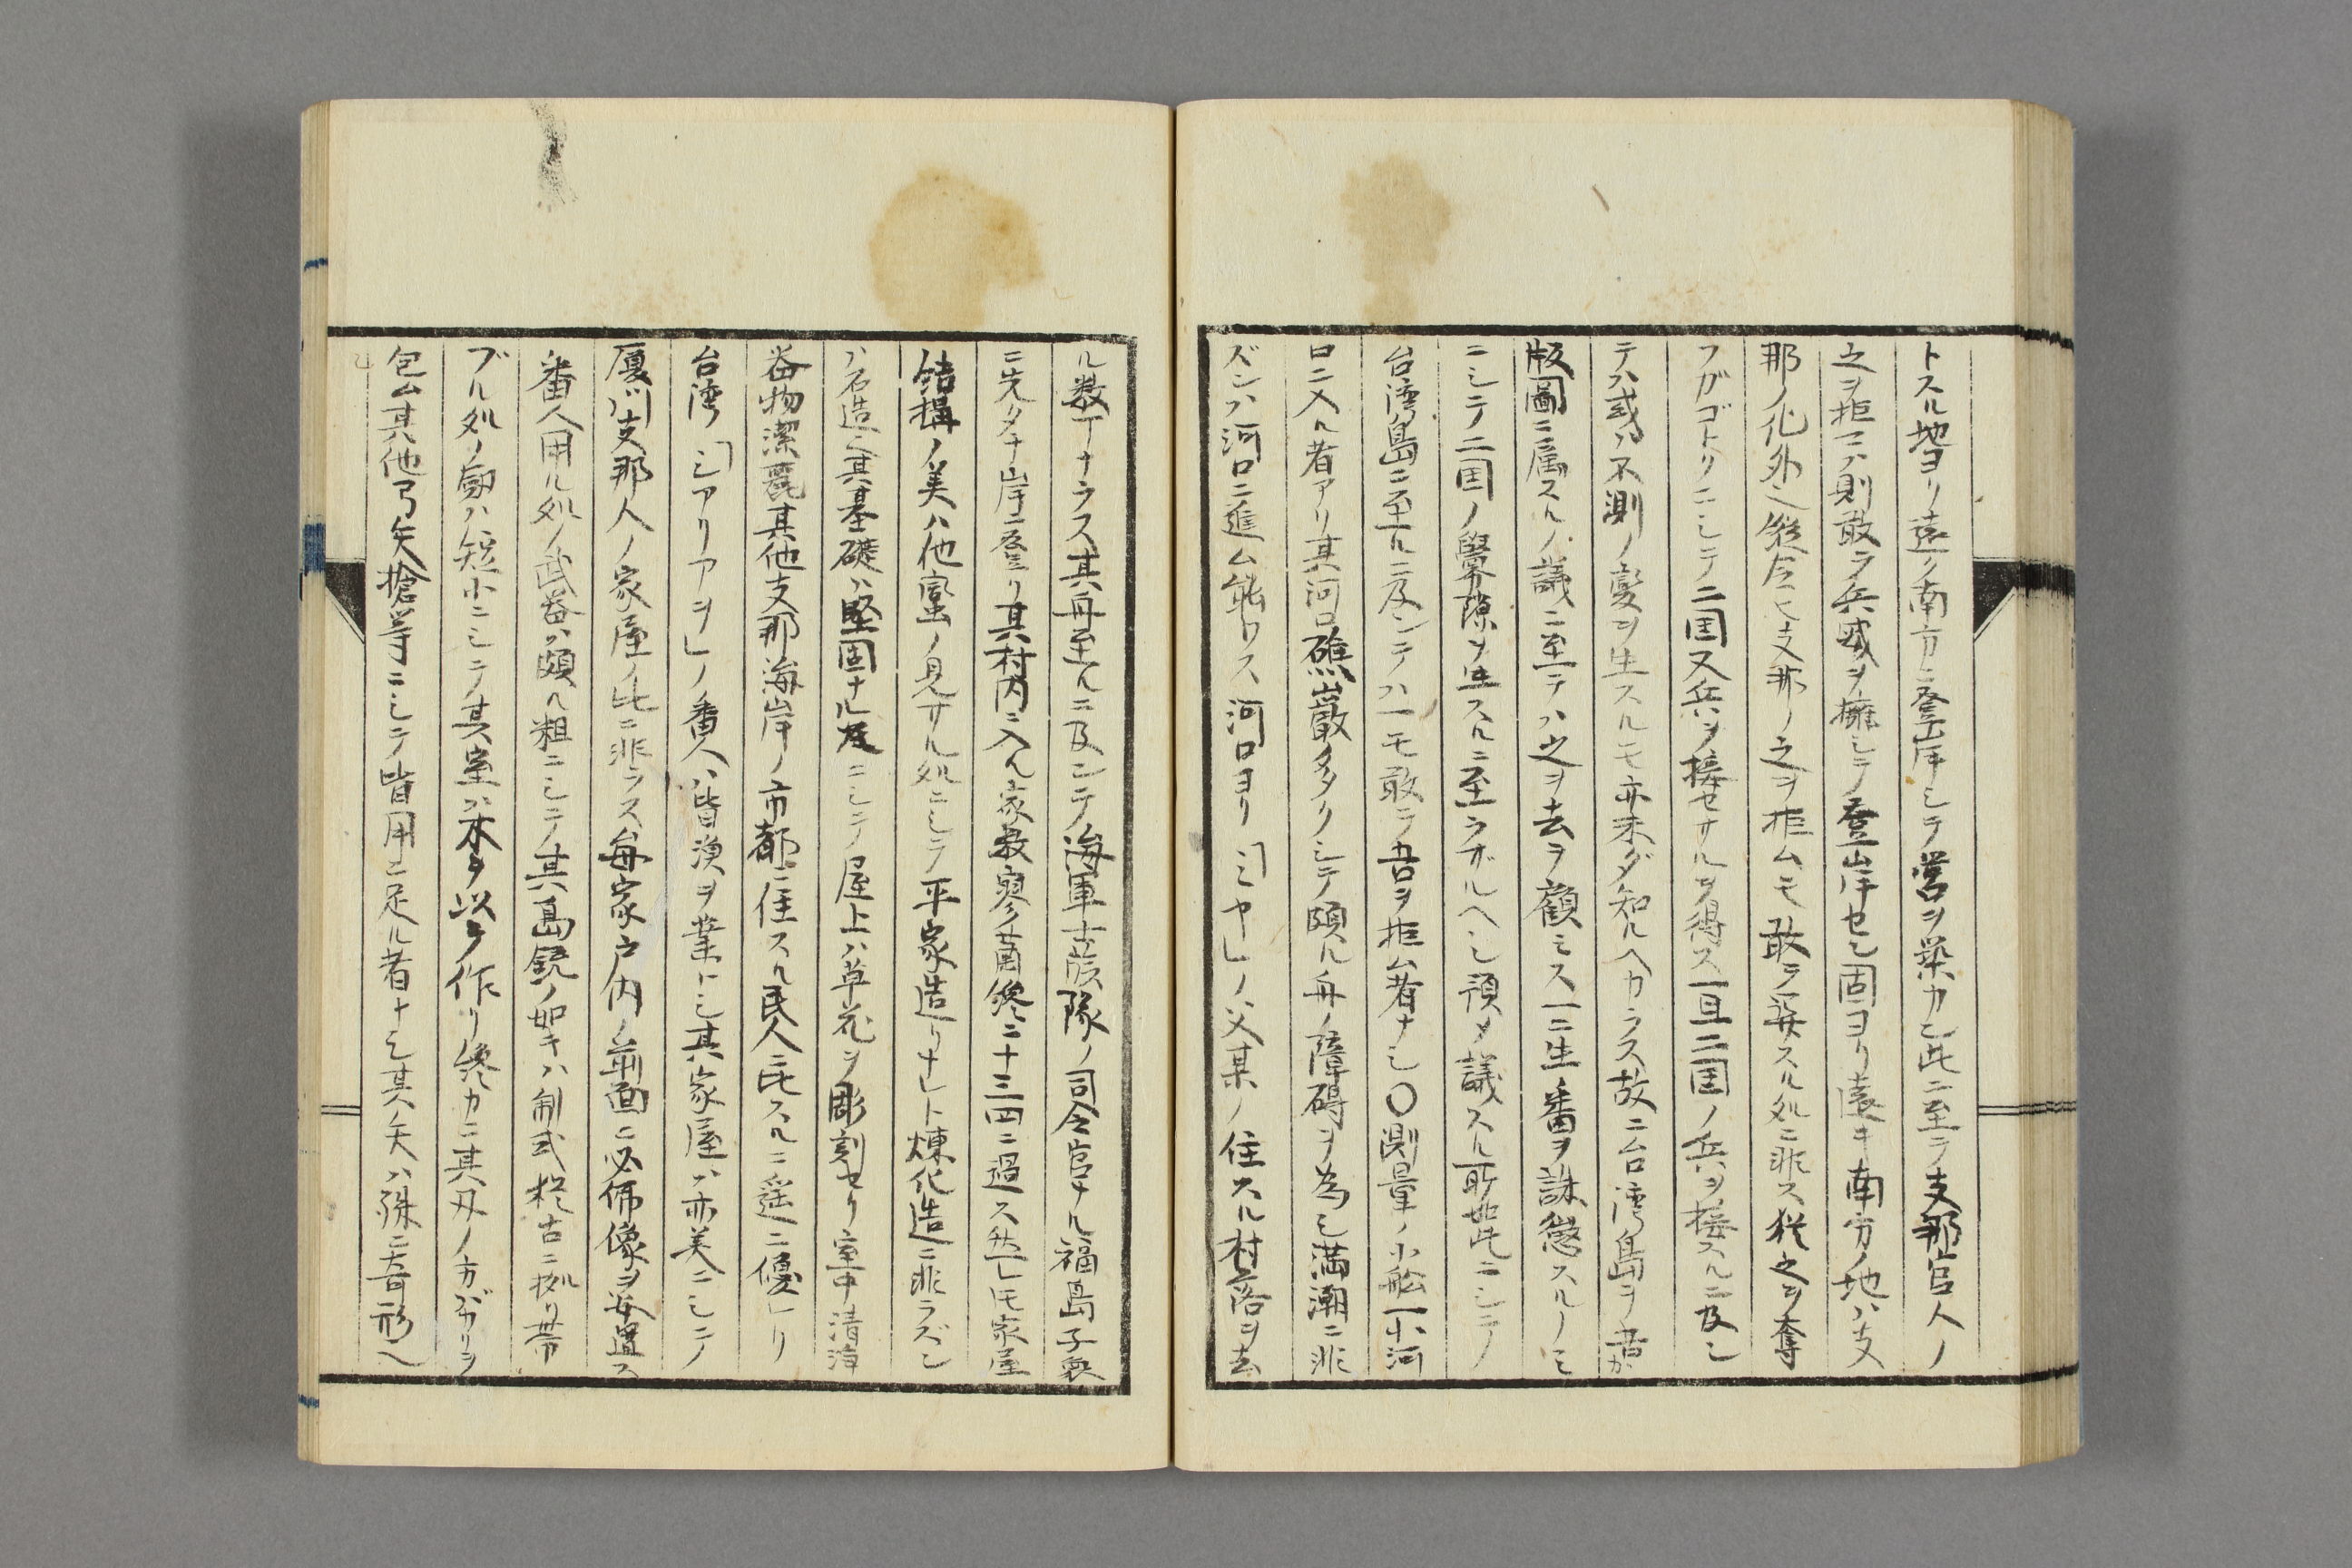 トスル地ヨリ遠ク南方ニ登岸シテ営ヲ築カン此ニ至テ支那官人ノ
之ヲ拒マハ則敢テ兵威ヲ擁シテ登岸セン固ヨリ遠キ南方ノ地ハ支
那ノ化外也縦令ヒ支那ノ之ヲ拒ムモ敢テ葵スル処ニ非ス従之ヲ奪
フガゴトクニシテ二国又兵ヲ接セサルヲ得ス一旦二国ノ兵ヲ接スルニ及ン
テハ或ハ不測ノ変ヲ生スルモ亦未ダ知ルヘカラス故ニ台湾島ヲ吾カ
版圖ニ属スルノ議ニ至テハ之ヲ去ヲ顧ミス一ニ生番ヲ誅懲スルノミ
ニシテ二国ノ釁隙ヲ生スルニ至ラザルヘシ預メ議スル所如此ニシテ
台湾島ニ至ルニ及ンテハ一モ敢テ吾ヲ拒ム者ナシ〇測量ノ小舩一小河
口ニ入ル者アリ其河口礁巌多クシテ頗ル舟ノ障碍ヲ為シ満潮ニ非
ズンハ河口ニ進ム能ワス河口ヨリ「ミヤ」ノ父某ノ住スル村落ヲ去
ル数丁ナラス其舟至ルニ及ンテ海軍士官隊ノ司令官ナル福島子衆
ニ先タチ岸ニ登リ其村内ニ入ル家数寥々菌纔ニ十三四ニ過ス然レ𪜈家屋
結構ノ美ハ他蛮ノ見サル処ニシテ平家造リナレト煉化造ニ非ラズン
ハ石造也其基礎ハ堅固ナル㞮ニシテ屋上ハ草花ヲ彫刻セリ室中清浄
器物潔麗其他支那海岸ノ市都ニ住スル民人ニ比スルニ遥ニ優レリ
台湾「シアリアヲ」ノ番人ハ皆漁ヲ業トシ其家屋ハ亦美ニシテ
厦川支那人ノ家屋ノ比ニ非ラス毎家戸内ノ前面ニ必佛像ヲ安置ス
番人用ル処ノ武器ハ頗ル粗ニシテ其鳥銃ノ如キハ制式極古ニ拠リ帯
ブル処ノ劔ハ短小ニシテ其室ハ木ヲ以テ作リ纔カニ其刄ノ方バカリヲ
包ム其他弓矢槍等ニシテ皆用ニ足ル者ナシ其矢ハ殊ニ奇形ヘ